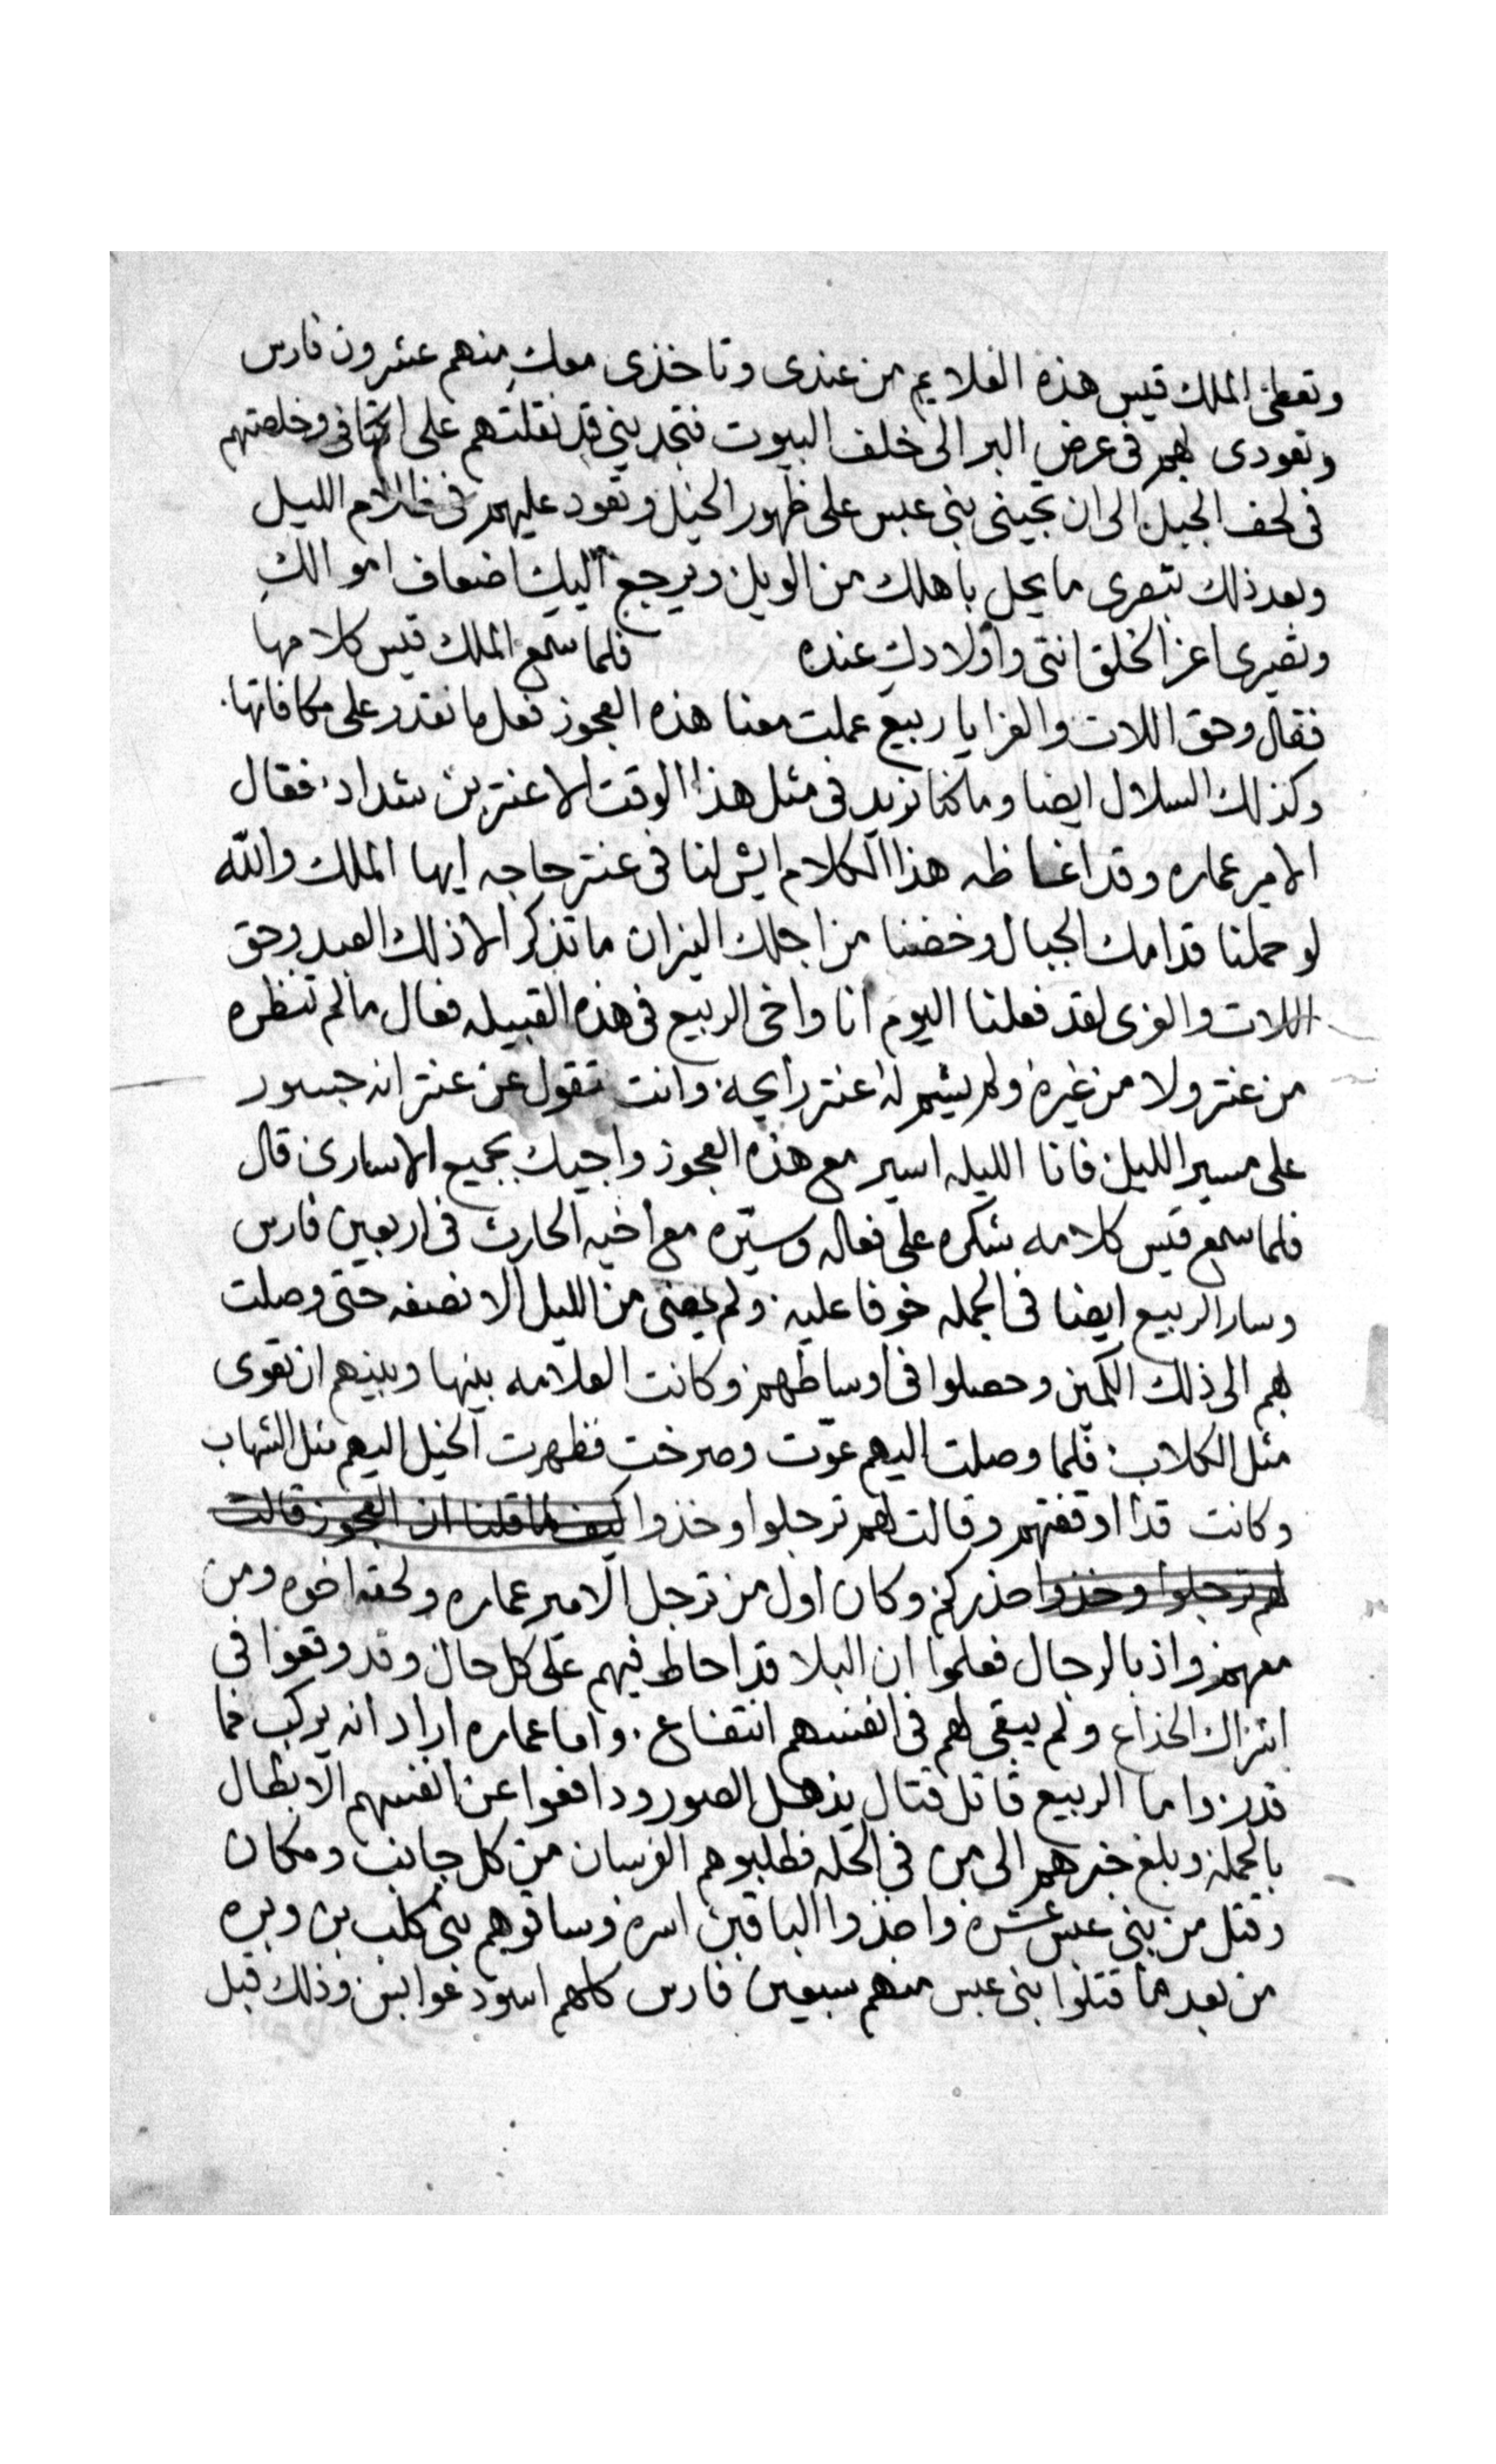 وتعطى الملك قيس هذه العلايم من عندى وتاخذى معكِ منهم عشرون فارس
وتعودى بهم فى عرض البر الى خلف البيوت فتجدينى قد نقلتهم على اكتافى وخلصتهم
فى لحف الجبل الى ان تجينى بنى عبس على ظهور الخيل وتعود عليهم فى ظلام الليل
وبعد ذلك تبصرى ما يحل باهلك من الويل ويرجع اليكِ اضعاف اموالكِ
وتصيرى اعز الخلق انتى واولادكِ عنده فلما سمع الملك قيس كلامها
فقال وحق اللات والعزا يا ربيع عملت معنا هذه العجوز فعل ما نقدر على مكافاتها
وكذلك السلال ايضا وما كنا نريد فى مثل هذا الوقت الا عنتر بن شداد فقال
الامير عماره وقد اغاظه هذا الكلام ايش لنا فى عنتر حاجه ايها الملك والله
لو حملنا قدامك الجبال وخضنا من اجلك النيران ما تذكر الا ذلك العبد وحق
اللات والعزى لقد فعلنا اليوم انا واخى الربيع فى هذه القبيله فعال ما لم تنظره
من عنتر ولا من غيره ولم يشم له عنتر رايحه وانت تقول عن عنتر انه جسور
على مسير الليل فانا الليله اسير مع هذه العجوز واجيك بجميع الاسارى قال
فلما سمع قيس كلامه شكره على فعاله وسيّره مع اخيه الحارث فى اربعين فارس
وسار الربيع ايضا فى الجمله خوفا عليه ولم يمضى من الليل الا نصفه حتى وصلت
بهم الى ذلك الكمين وحصلوا فى اوساطهم وكانت العلامه بينها وبينهم ان تعوى
مثل الكلاب فلما وصلت اليهم عوّت وصرخت فظهرت الخيل اليهم مثل الشهاب
وكانت قد اوقفتهم وقالت لهم ترجلوا وخذوا كيف ما قلنا ان العجوز قالت
لهم ترجلوا وخذوا حذركم وكان اول من ترجل الامير عماره ولحقه اخوه ومن
معهم واذ بالرجال فعلموا ان البلا قد احاط فيهم على كل حال وقد وقعوا فى
اشراك الخداع ولم يبقى لهم فى انفسهم انتفاع واما عماره اراد انه يركب فما
قدر واما الربيع قاتل قتال يذهل الصور ودافعوا عن انفسهم الابطال
بالجمله وبلغ خبرهم الى من فى الحله فطلبوهم الفرسان من كل جانب ومكان
وقتل من بنى عبس عشره واخذوا الباقين اسره وساقوهم بنى كلب بن وبره
من بعد ما قتلوا بنى عبس منهم سبعين فارس كلهم اسود عوابس وذلك قبل